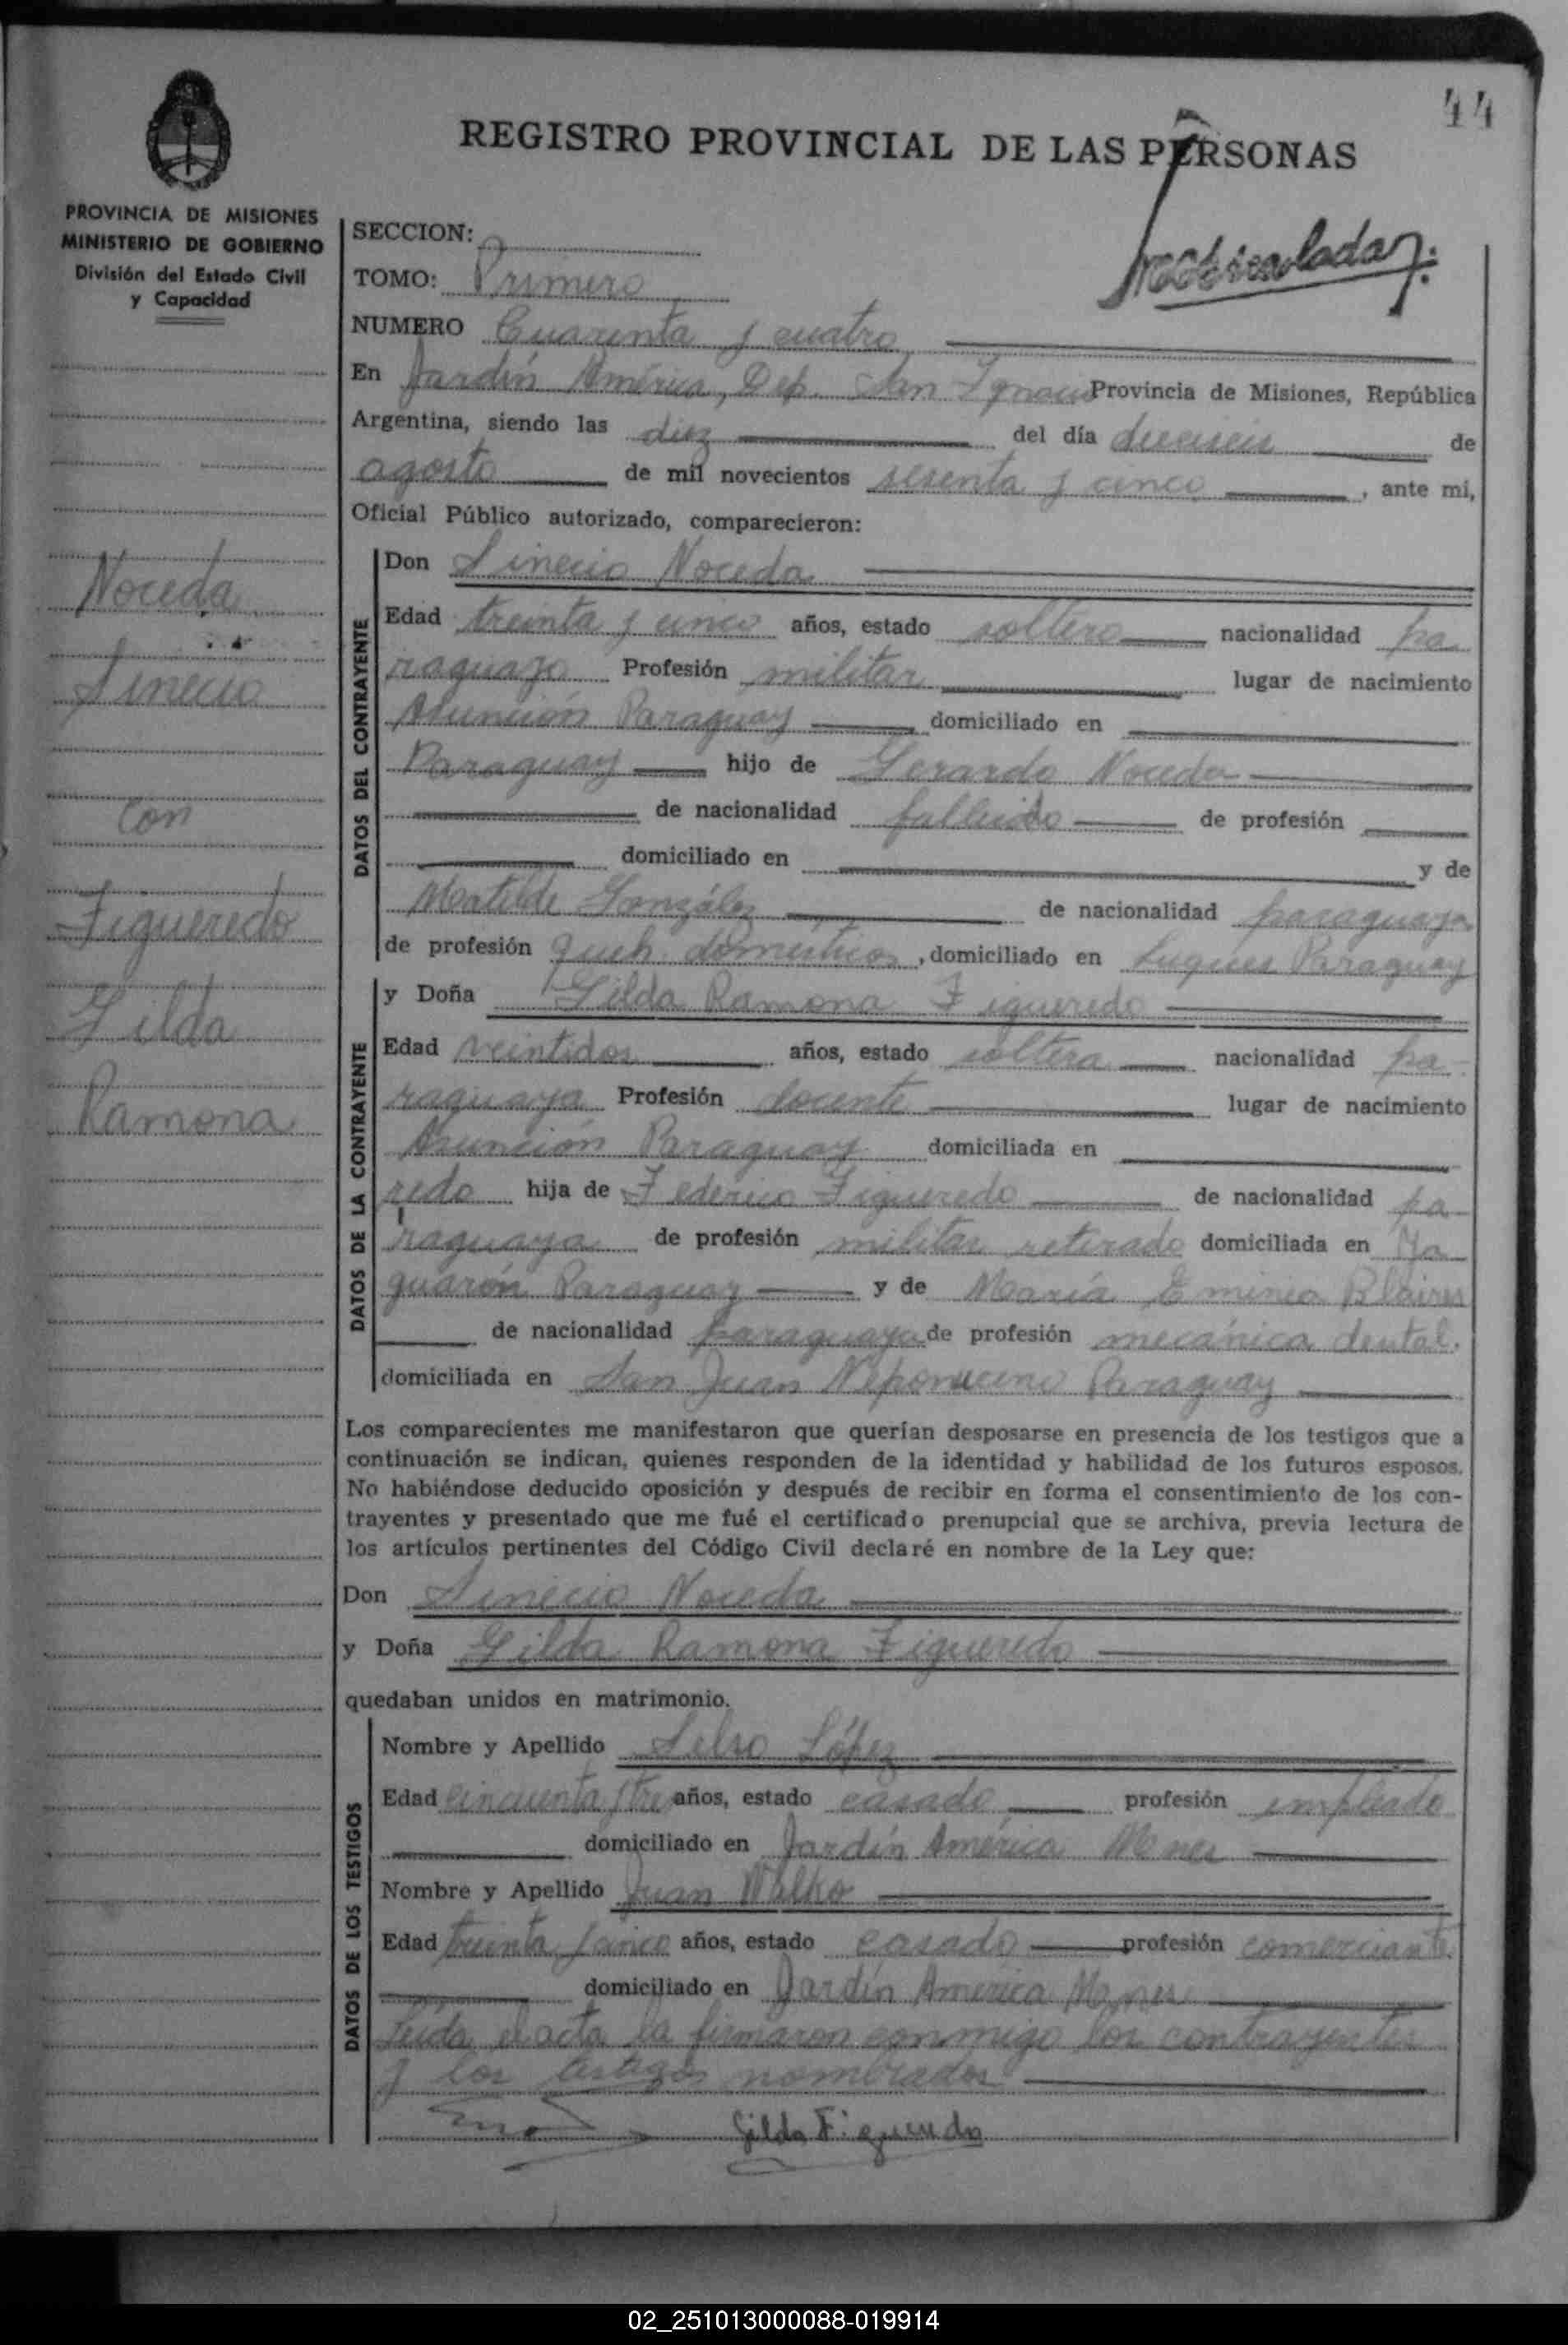 44
REGISTRO PROVINCIAL DE LAS PERSONAS
PROVINCIA DE MISIONES
MINISTERIO DE GOBIERNO
División del Estado Civil
y Capacidad
SECCION:
TOMO: Primero
NUMERO Cuarenta y cuatro
En Jardín América, Dep. San Ignacio Provincia de Misiones, República
Argentina, siendo las diez del día dieciseis de
agosto de mil novecientos sesenta y cinco, ante mi,
Oficial Público autorizado, comparecieron:
Noceda
Sinecio
con
Figueredo
Gilda
Ramona
DATOS DEL CONTRAYENTE
Don Sinecio Noceda
Edad treinta y cinco años, estado soltero nacionalidad pa
raguayo Profesión militar lugar de nacimiento
Asunción Paraguay domiciliado en
Paraguay hijo de Gerardo Noceda
de nacionalidad fallecido de profesión
domiciliado en y de
Matilde González de nacionalidad paraguaya
de profesión queh. domésticos, domiciliado en Paraguay
DATOS DE LA CONTRAYENTE
y Doña Gilda Ramona Figueredo
Edad veintidos años, estado soltera nacionalidad pa-
raguaya Profesión docente lugar de nacimiento
Asunción Paraguay domiciliada en
redo hija de Federico Figueredo de nacionalidad pa
raguaya de profesión militar retirado domiciliada en Ya
guarón Paraguay y de María Eminia
de nacionalidad paraguaya de profesión mecánica dental.
domiciliada en San Juan Nepomuceno Paraguay
Los comparecientes me manifestaron que querían desposarse en presencia de los testigos que a
continuación se indican, quienes responden de la identidad y habilidad de los futuros esposos.
No habiéndose deducido oposición y después de recibir en forma el consentimiento de los con-
trayentes y presentado que me fué el certificado prenupcial que se archiva, previa lectura de
los artículos pertinentes del Código Civil declaré en nombre de la Ley que:
Don Sinecio Noceda
y Doña Gilda Ramona Figueredo
quedaban unidos en matrimonio.
DATOS DE LOS TESTIGOS
Nombre y Apellido Selso López
Edad cincuenta y tres años, estado casado profesión empleado
domiciliado en Jardín América Mnes
Nombre y Apellido Juan Walko
Edad treinta y cinco años, estado casado profesión comerciante
domiciliado en Jardín América Mnes
Leida el acta la firmaron conmigo los contrayentes
y los testigos nombrados
Gilda Figueredo
02_251013000088-019914